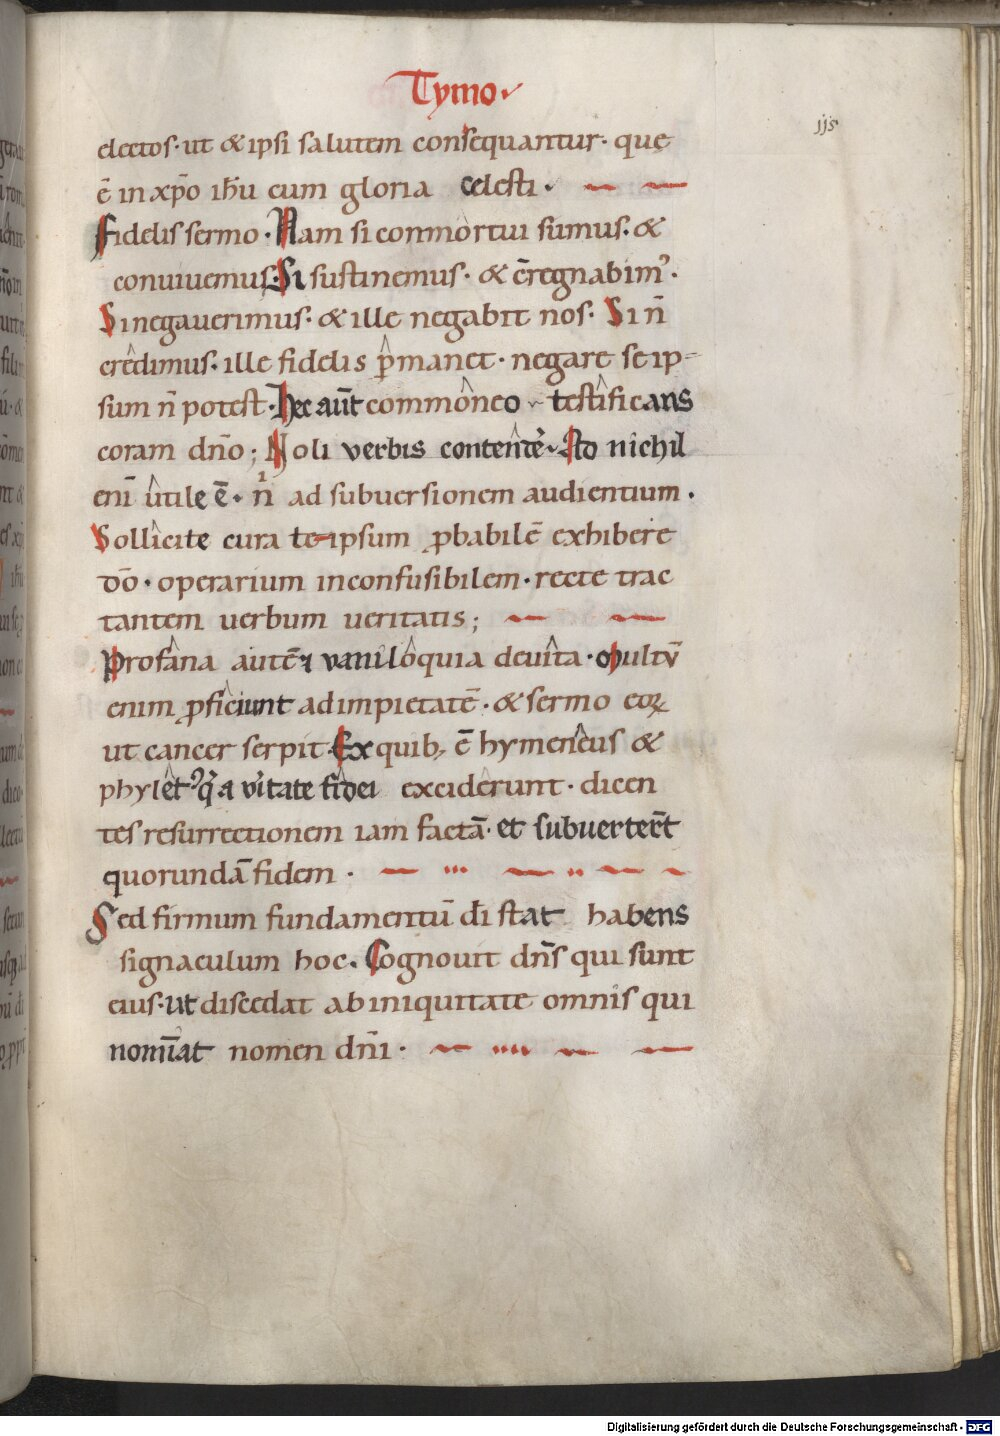 Tymo
jjs
electos· ut & ipsi salutem consequantur· quę
ē in xp̄o ih̄u cum gloria celesti·
Fidelis sermo· Nam si conmortui sumus· &
conuiuemus· Si sustinemus· & c̄regnabim᾿·
Si negauerimus· & ille negabit nos· Si n̄
credimus· ille fidelis p̄manet· negare se ip-
sum n̄ potest· Hec aūt commoneo testificans
coram dn̄o; Noli verbis contendē Ad nichil
enī utile ē· n̄ ad subuersionem audientium·
Sollicite cura te ipsum p̄babilē exhibere
dō· operarium inconfusibilem· recte trac
tantem uerbum ueritatis;
Profana autē & vaniloquia deuita· Multū
enim p̄ficiunt ad impietatē· & sermo eoꝝ
ut cancer serpit· Ex quib; ē hymeneus &
phylet᾿ q̄ a v̄itate fidei exciderunt· dicen
tes resurrectionem iam factā· et subuertert̄
quorundā fidem·
Sed firmum fundamentū dī stat habens
signaculum hoc· Cognouit dn̄s qui sunt
eius· ut discedat ab iniquitate omnis qui
nomīat nomen dn̄i·
Digitalisierung gefördert durch die Deutsche Forschungsgemeinschaft - DFG